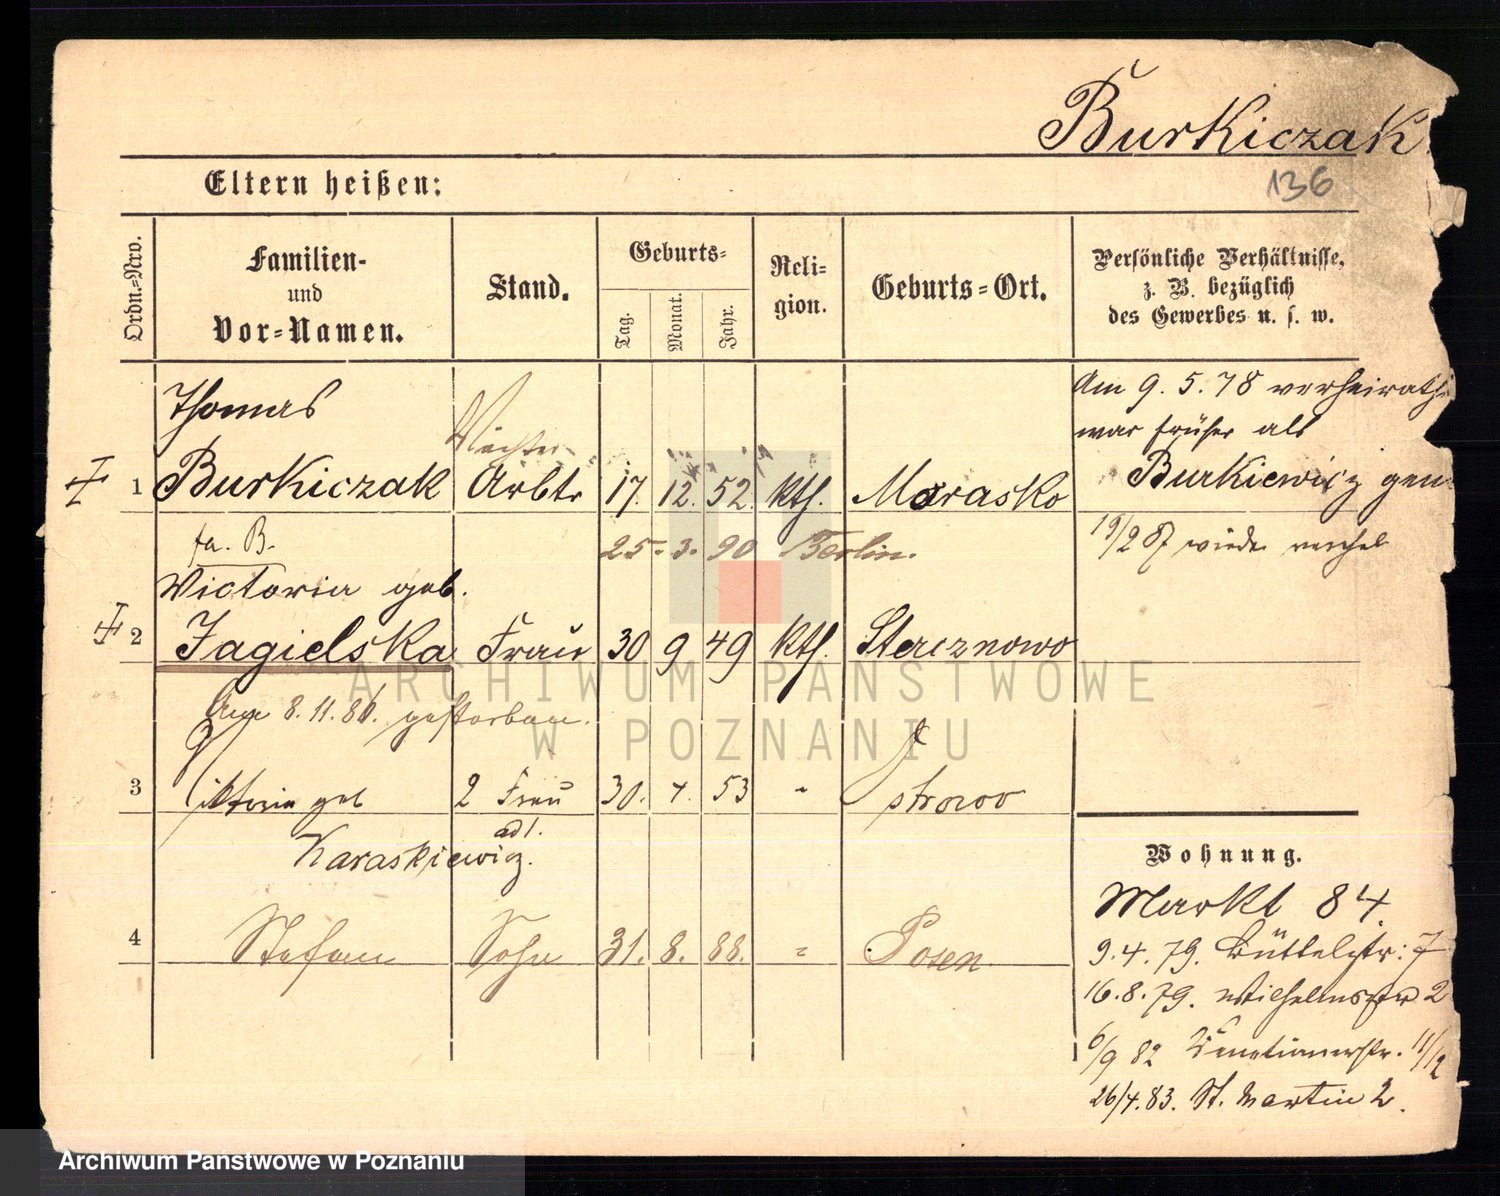 Burkiczak
136
Eltern heißen:
Ordn.-Nro.
Familien-
und
Vor-Namen.
Stand.
Geburts-
Tag.
Monat.
Jahr.
Reli-
gion.
Geburts-Ort.
Persönliche Verhältnisse,
z. B. bezüglich
des Gewerbes u. s. w.
Thomas
Wächter
1 Burkiczak Arbtr 17. 12. 52. kth. Morasko
Am 9. 5. 78 verheirath
war früher als
Burkiewicz gen
19/2 87 wieder
fr. B. 25. 3. 90 Berlin.
Victoria geb.
2 Jagielska Frau 30 9 49 kth.
Am 8. 11. 86. gestorben.
3 Viktoria geb 2 Frau 30. 53 "
adl.
Karaskiewicz.
4 Stefan Sohn 31. 8. 88. " Posen
Wohnung.
Markt 84.
9. 4. 79. Büttelstr: 7
16. 8. 79. Wilhelmsstr 2
6/9 82 11/12
26/4. 83. St. Martin 2.
ARCHIWUM PAŃSTWOWE
W POZNANIU
Archiwum Państwowe w Poznaniu